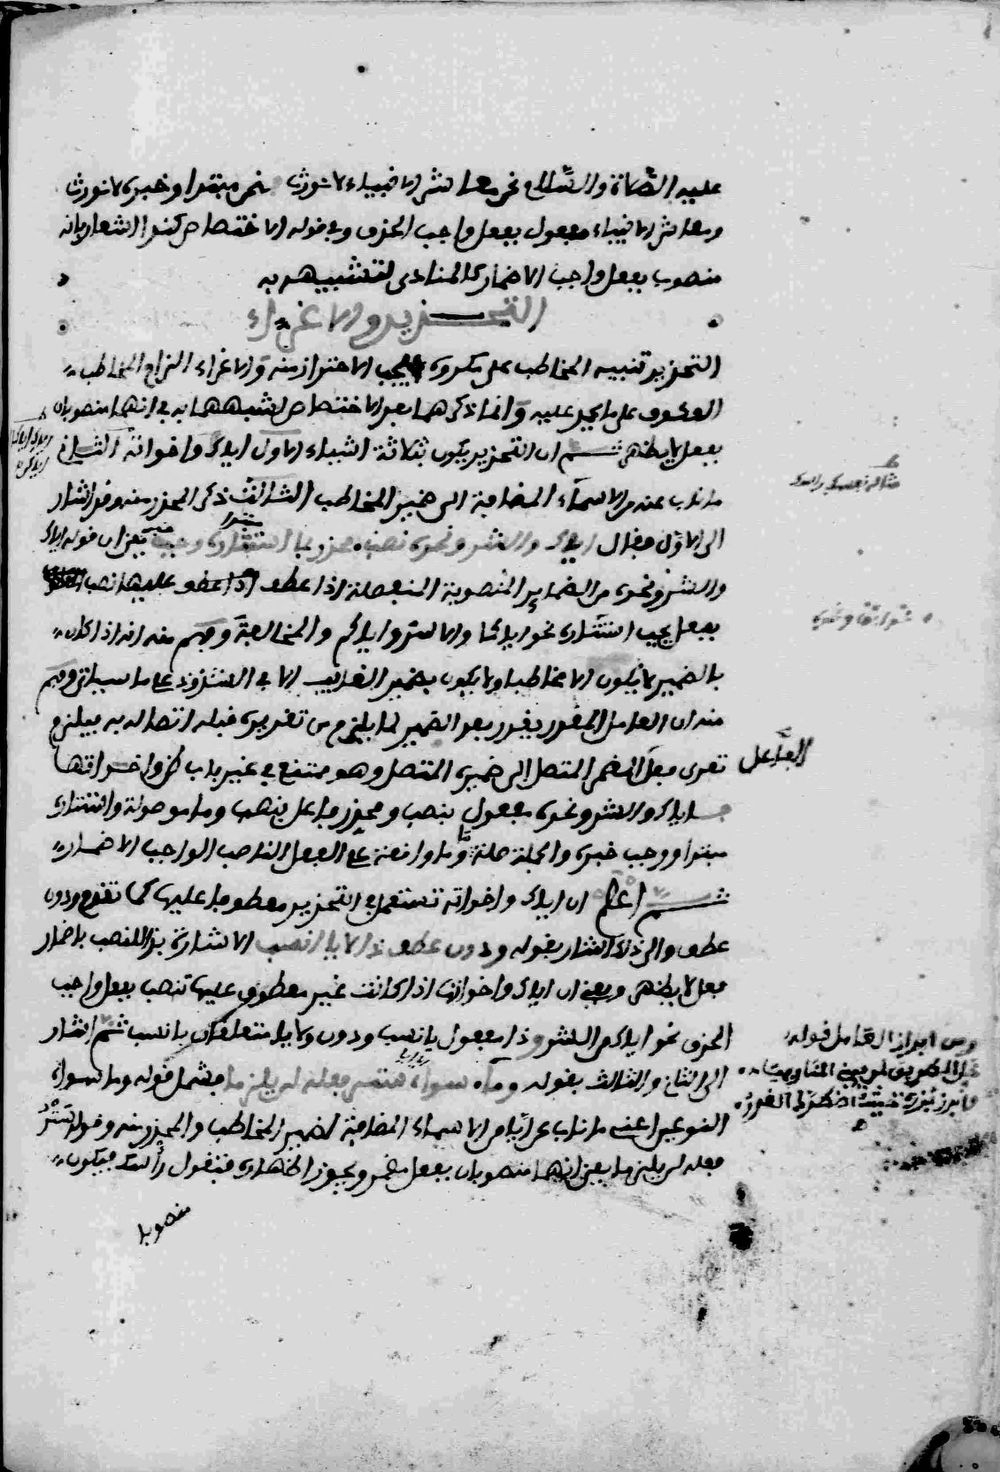 عليه الصلاة والسلام نحن معاشر الانبياء لا نورث فنحن مبتدا وخبره لا نورث
ومعاشر الانبياء مفعول بفعل واجب الحذف وفي قوله الاختصاص كندا اشعار بانه
منصوب بفعل واجب الاضمار كالمنادى لتشبيهه به
التحذير والاغراء
التحذير تنبيه المخاطب على مكروه يجب الاحتراز منه والاغراء الزام المخاطب
العكوف على ما يحمد عليه وانما ذكرهما بعد الاختصاص لشبههما به في انهما منصوبان
بفعل لا يظهر ثم ان التحذير يكون بثلاثة اشياء الاول اياك واخواته الثاني
ما ناب عنه من الاسماء المضافة الى ضمير المخاطب الثالث ذكر المحذر منه وقد اشار
الى الاول فقال اياك والشر ونحوه نصب محذر بما استتاره وجب يعني ان قوله اياك
والشر ونحوه من الضماير المنصوبة المنفصلة اذا عطف عليها نصب
بفعل يجب استتاره نحو اياكما والشر واياكم والمخالفة وفهم منه انه اذا كان
بالضمير لا يكون الا مخاطبا ولا يكون بضمير الغايب الا في الشذوذ على ما سياتي وفهم
منه ان العامل المقدر يقدر بعد الضمير لما يلزم من تقديره قبله اتصاله به فيلزم
تعدى فعل المضمر المتصل الى ضميره المتصل وهو ممتنع في غير باب ظن واخواتها
فاياك والشر ونحوه مفعول بنصب ومحذر فاعل بنصب وما موصولة واستتاره
مبتدا ووجب خبره والجملة صلة ما وما واقعة على الفعل الناصب الواجب الاضمار
ثم اعلم ان اياك واخواته تستعمل في التحذير معطوفا عليها كما تقدم ودون
عطف والى ذلك اشار بقوله ودون عطف ذا لايا انسب الاشارة بذا للنصب باضمار
فعل لا يظهر ويعني ان اياك واخواتها اذا كانت غير معطوف عليها تنصب بفعل واجب
الحذف نحو اياك من الشر وذا مفعول بانسب ودون ولايا متعلقان بانسب ثم اشار
الى الثاني والثالث بقوله وما سواه ستر فعله لن يلزما فشمل قوله وما سواه
النوعين اعني ما ناب عن ايا من الاسماء المضافة لضمير المخاطب والمحذر منه وقوله ستر
فعله لن يلزما يعني انهما منصوبان بفعل مضمر ويجوز اظهاره فتقول راسك فيكون
منصوبا
الفاعل